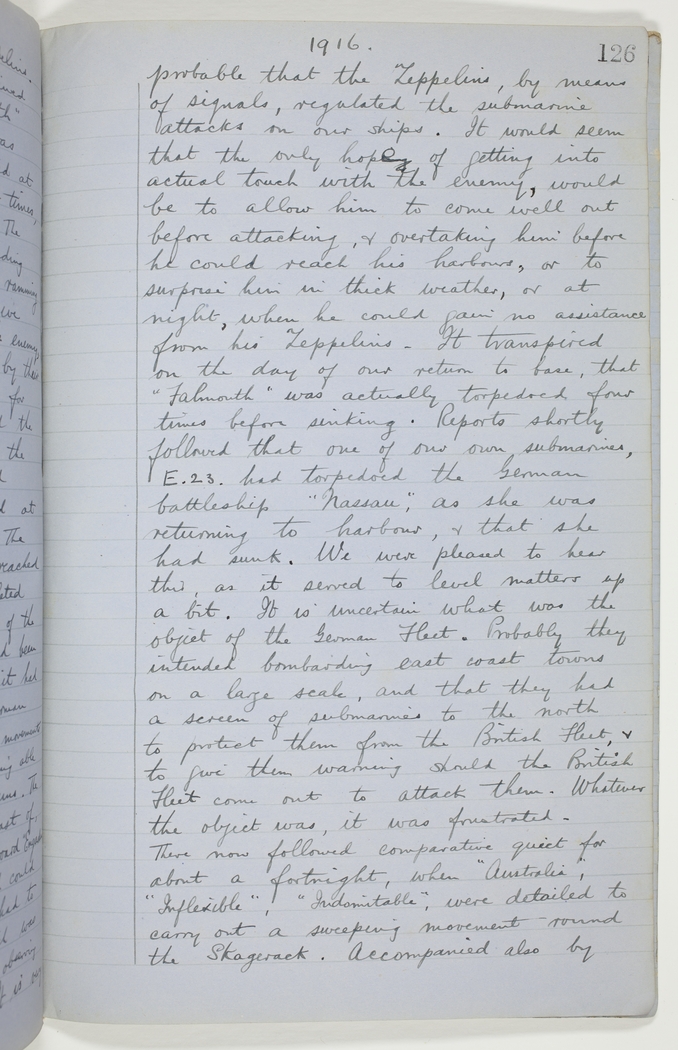 1916.
126
probable that the "Zeppelins, by means
of signals, regulated the submarine
attacks on our ships. It would seem
that the only hope of getting into
actual touch with the enemy, would
be to allow him to come well out
before attacking, & overtaking him before
he could reach his harbours, or to
surprise him in thick weather, or at
night, when he could gain no assistance
from his Zeppelins - It transpired
on the day of our return to base, that
"Falmouth" was actually torpedoed four
times before sinking. Reports shortly
followed that one of our own submarines,
E.23. had torpedoed the German
battleship "Nassau", as she was
returning to harbour, & that she
had sunk. We were pleased to hear
this, as it served to level matters up
a bit. It is uncertain what was the
object of the German Fleet. Probably they
intended bombarding east coast towns
on a large scale, and that they had
a screen of submarines to the north
to protect them from the British Fleet, &
to give them warning should the British
Fleet come out to attack them. Whatever
the object was, it was frustrated -
There now followed comparative quiet for
about a fortnight, when "Australia",
"Inflexible", "Indomitable", were detailed to
carry out a sweeping movement round
the Skagerack. Accompanied also by